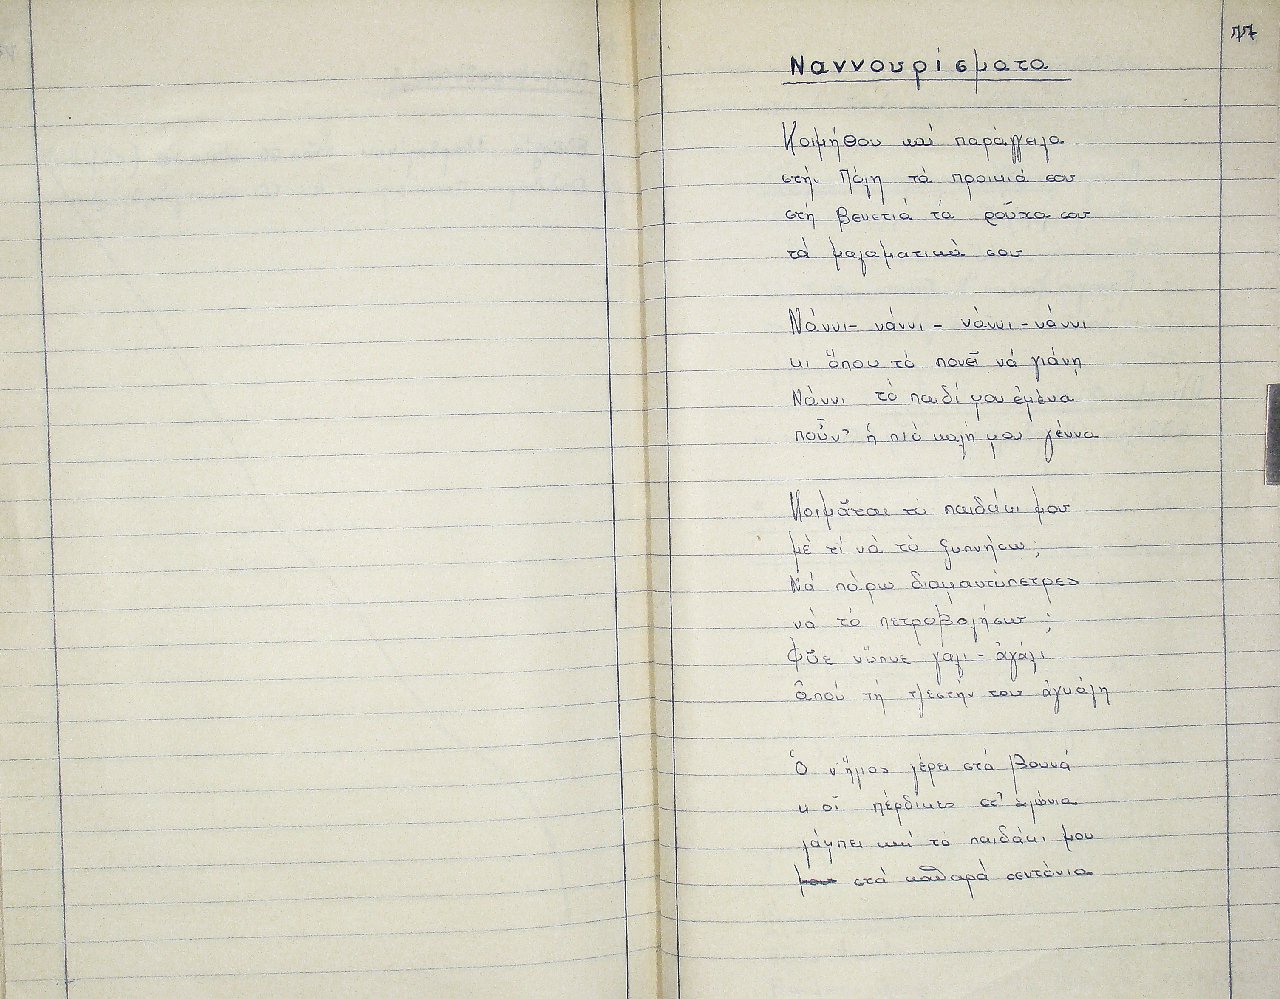 77
Ναννουρίσματα
Κοιμήθου καί παράγγειλα
στήν Πόλη τά προικιά σου
στή Βενετιά τά ροῦχα σου
τά μαλαματικά σου
Νάννι - νάννι - νάννι - νάννι
κι ὅπου τό πονεῖ νά γιάνῃ
Νάννι τό παιδί μου ἐμένα
ποὖν' ἡ πιό καλή μου γέννα
Κοιμᾶται τό παιδάκι μου
μέ τί νά τό ξυπνήσω;
Νά πάρω διαμαντόπετρες
νά τό πετροβολήσω;
Φῦε ὕπνε γάλι - ἀγάλι
ἀπού τή ζεστήν του ἀγκάλη
Ὁ ἥμος γέρει στά βουνά
κ οἱ πέρδικες στ'
γάμπει καί τό παιδάκι μου
στά καθαρά σεντόνια